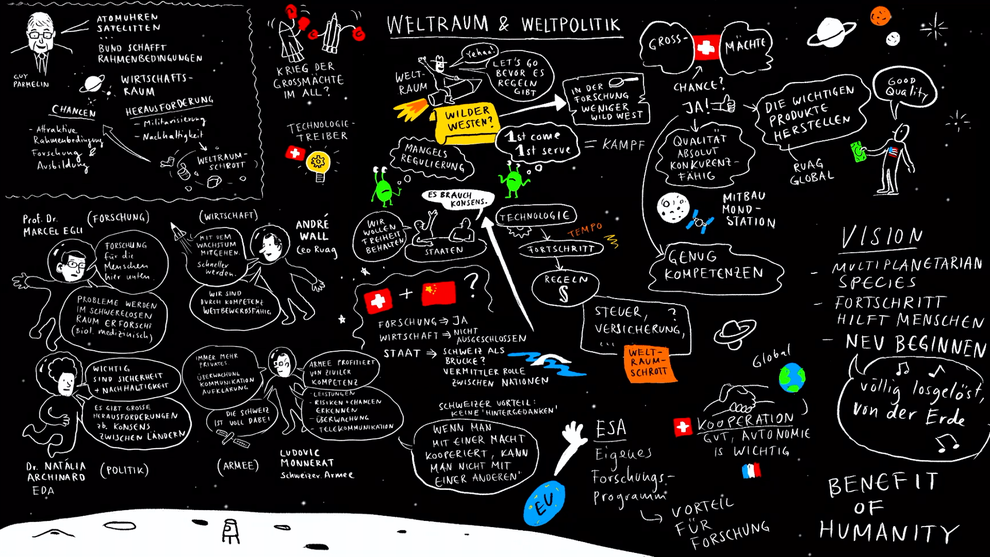 WELTRAUM & WELTPOLITIK
GUY
PARMELIN
ATOMUHREN
SATELITTEN
...
BUND SCHAFFT
RAHMENBEDINGUNGEN
WIRTSCHAFTS-
RAUM
CHANCEN
- Attraktive
Rahmenbedingung
Forschung
- Ausbildung
HERAUSFORDERUNG
- Militarisierung
- Nachhaltigkeit
WELTRAUM-
SCHROTT
KRIEG DER
GROSSMÄCHTE
IM ALL?
TECHNOLOGIE-
TREIBER
WELT-
RAUM
Yehaa!
LET'S GO
BEVOR ES
REGELN
GIBT
WILDER
WESTEN?
IN DER
FORSCHUNG
WENIGER
WILD WEST
MANGELS
REGULIERUNG
1st come
1st serve
= KAMPF
ES BRAUCH
KONSENS.
WIR
WOLLEN
FREIHEIT
BEHALTEN
STAATEN
TECHNOLOGIE
TEMPO
FORTSCHRITT
REGELN
§
GROSS-
MÄCHTE
CHANCE?
JA!
DIE WICHTIGEN
PRODUKTE
HERSTELLEN
GOOD
QUALITY
RUAG
GLOBAL
QUALITÄT
ABSOLUT
KONKURENZ-
FÄHIG
MITBAU
MOND-
STATION
GENUG
KOMPETENZEN
Prof. Dr.
MARCEL EGLI
(FORSCHUNG)
FORSCHUNG
für die
Menschen
hier unten
PROBLEME WERDEN
IM SCHWERELOSEN
RAUM ERFORSCHT
(Biol. medizinisch)
(WIRTSCHAFT)
MIT DEM
WACHSTUM
MITGEHEN.
Schneller
werden.
WIR SIND
DURCH KOMPETENZ
WETTBEWERBSFÄHIG
ANDRÉ
WALL
Ceo Ruag
WICHTIG
SIND SICHERHEIT
+ NACHHALTIGKEIT
ES GIBT GROSSE
HERAUSFORDERUNGEN
zb. KONSENS
ZWISCHEN LÄNDERN
Dr. NATÀLIA
ARCHINARD
EDA
(POLITIK)
IMMER MEHR
PRIVATE!
ÜBERWACHUNG
KOMMUNIKATION
AUFKLÄRUNG
DIE SCHWEIZ
IST VOLL DABEI
(ARMEE)
ARMEE PROFITIERT
VON ZIVILER
KOMPETENZ
- LEISTUNGEN
- RISIKEN + CHANCEN
ERKENNEN
- ÜBERWACHUNG
- TELEKOMMUNIKATION
LUDOVIC
MONNERAT
Schweizer Armee
+
?
FORSCHUNG ⇒ JA
WIRTSCHAFT ⇒ NICHT
AUSGESCHLOSSEN
STAAT ⇒ SCHWEIZ ALS
BRÜCKE?
VERMITTLER ROLLE
ZWISCHEN NATIONEN
SCHWEIZER VORTEIL:
KEINE 'HINTERGEDANKEN'
WENN MAN
MIT EINER MACHT
KOOPERIERT, KANN
MAN NICHT MIT
EINER ANDEREN'
STEUER, ?
VERSICHERUNG,
...
WELT-
RAUM-
SCHROTT
EU
ESA
Eigenes
Forschungs-
Programm
VORTEIL
FÜR
FORSCHUNG
Global
KOOPERATION
GUT, AUTONOMIE
IS WICHTIG
VISION
- MULTIPLANETARIAN
SPECIES
- FORTSCHRITT
HILFT MENSCHEN
- NEU BEGINNEN
völlig losgelöst,
von der Erde
BENEFIT
OF
HUMANITY